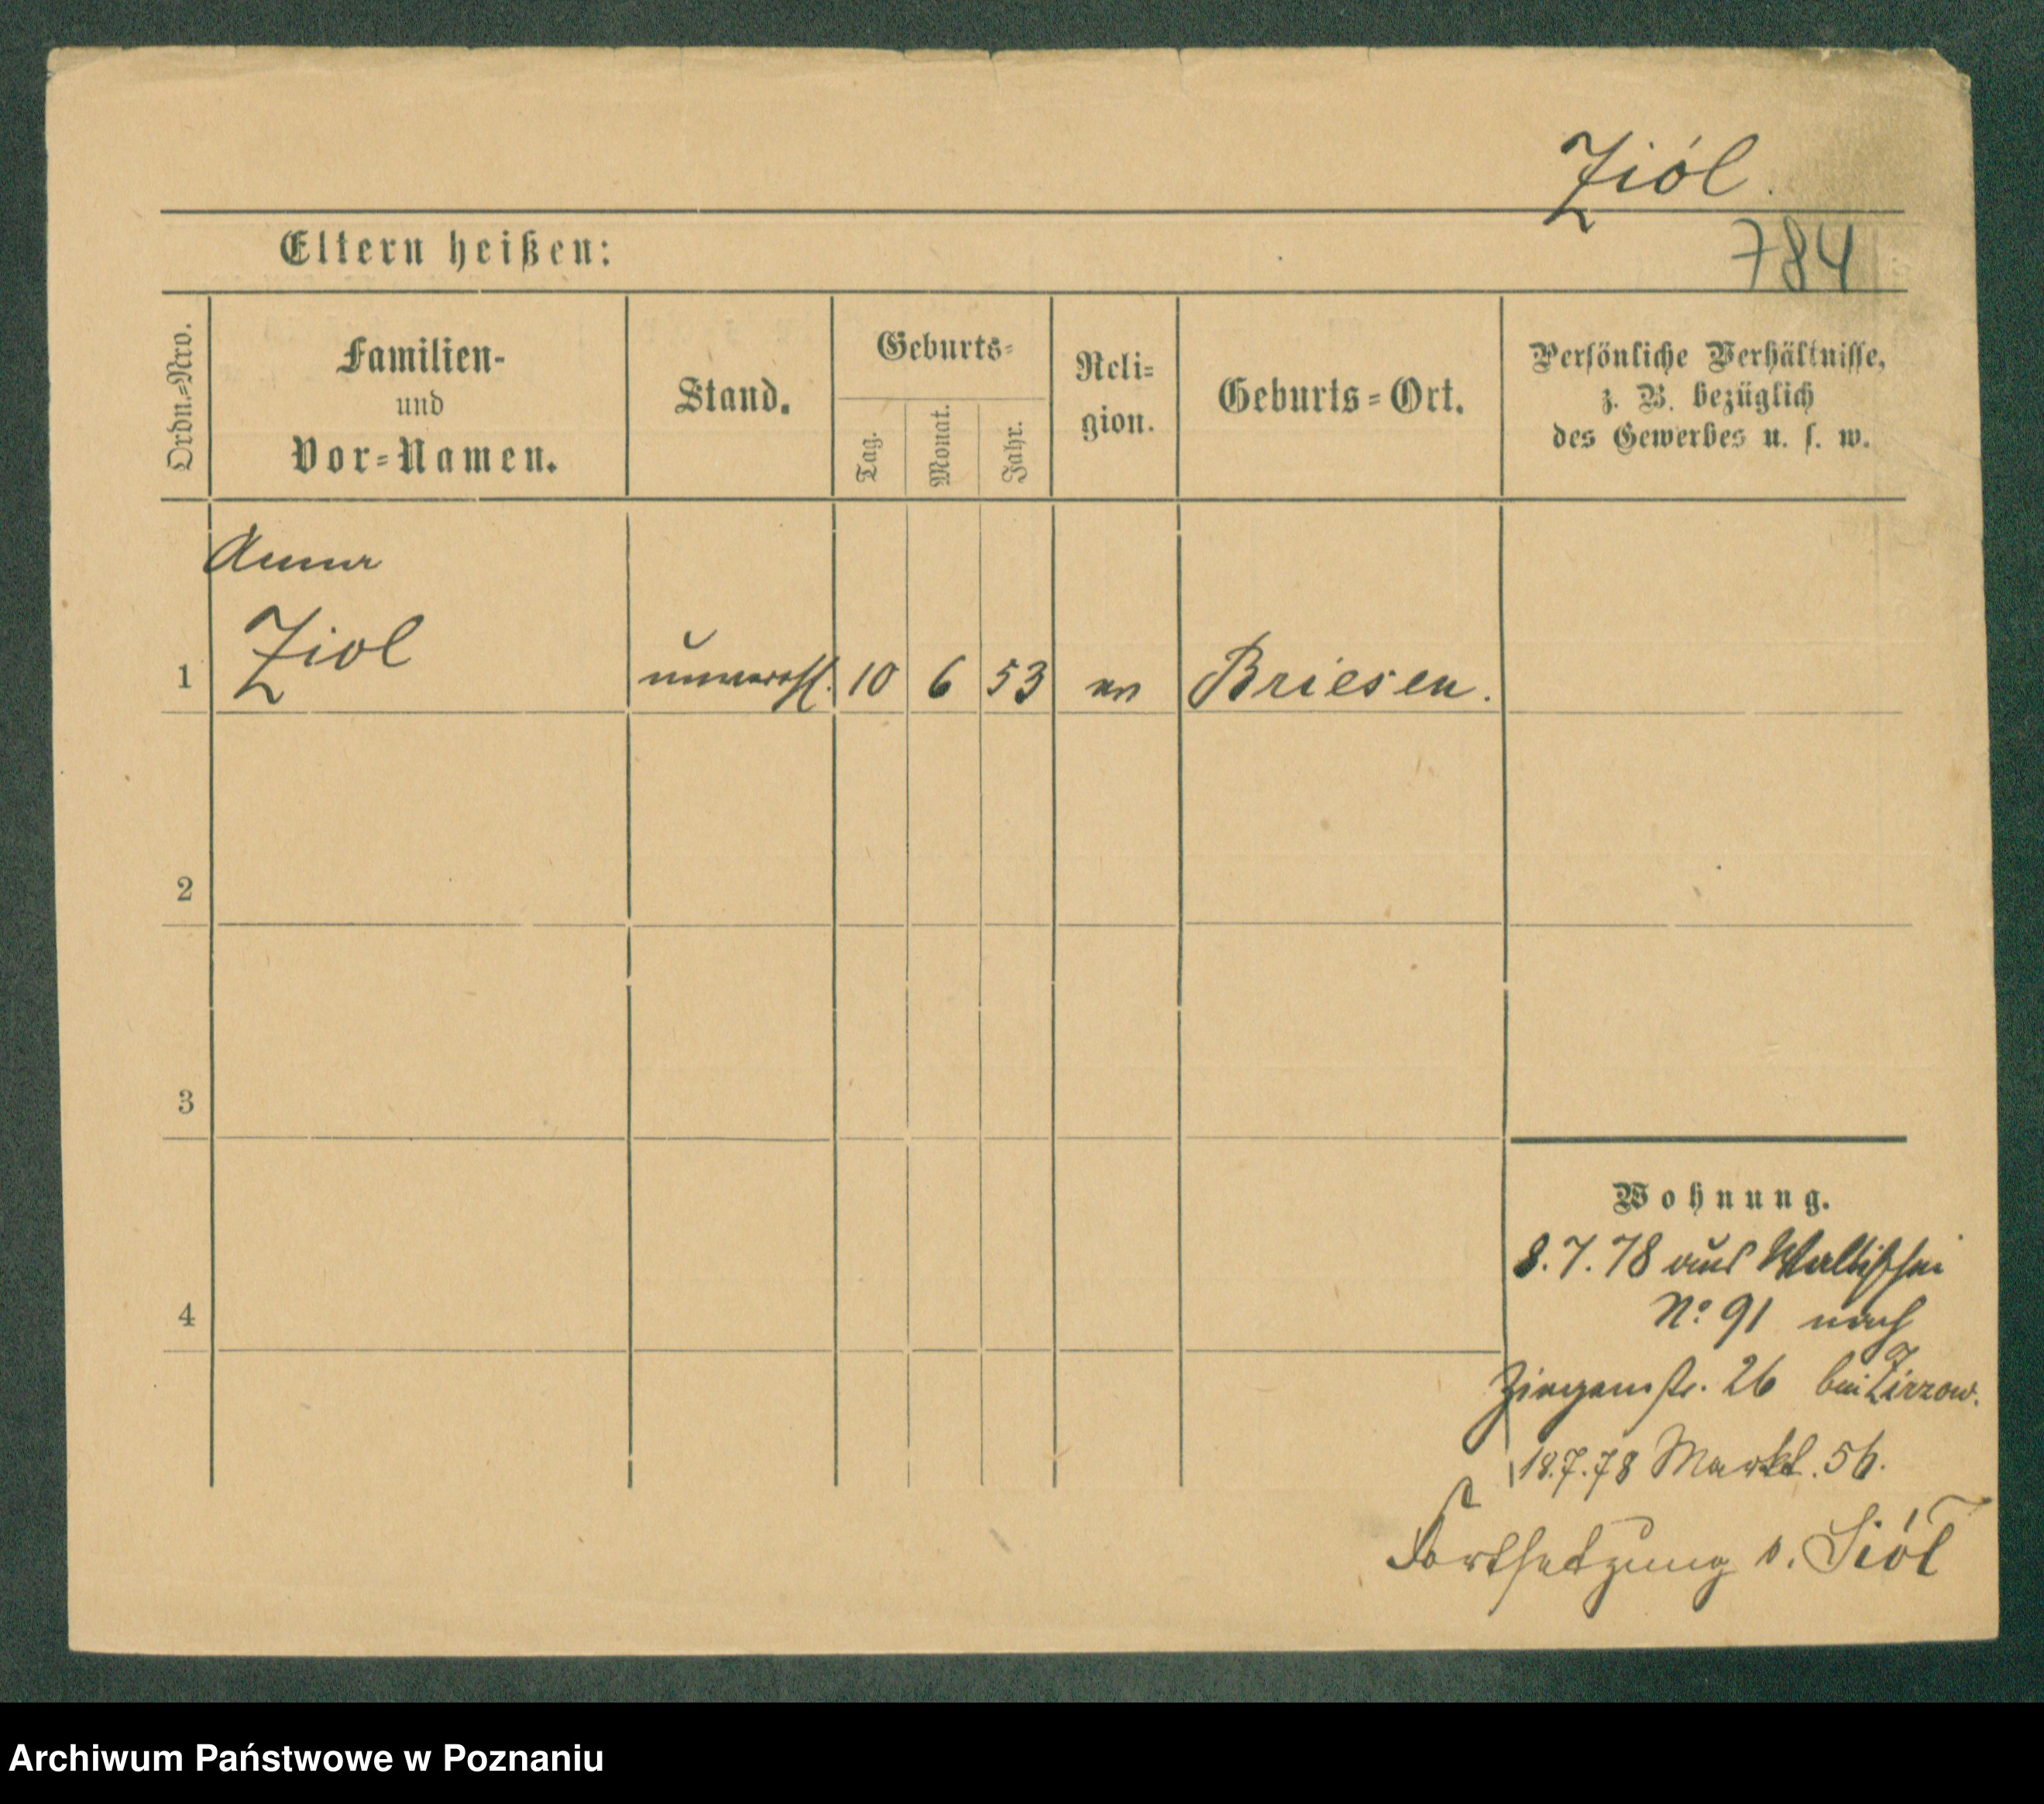 Ziół.
784
Eltern heißen:
Ordn.=Nro.
Familien-
und
Vor=Namen.
Stand.
Geburts=
Tag.
Monat.
Jahr.
Reli=
gion.
Geburts=Ort.
Persönliche Verhältnisse,
z. B. bezüglich
des Gewerbes u. s. w.
Anna
1 Ziol unverehl. 10 6 53 Briesen.
2
3
4
Wohnung.
8.7.78 aus Wallischei
No 91 nach
Ziegenstr. 26 bei
18.7.78 Markt. 56.
Fortsetzung s. Siół
Archiwum Państwowe w Poznaniu